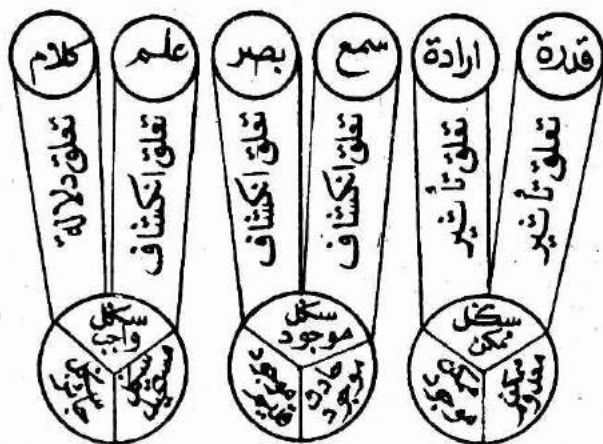 قدرة
ارادة
سمع
بصر
علم
كلام
تعلق تأثير
تعلق تأثير
تعلق انكشاف
تعلق انكشاف
تعلق انكشاف
تعلق دلالة
سڬل
ممكن
ممكن
معدوم
ممكن
موجود
سڬل
موجود
موجود
حادث
موجود
قديم
سڬل
واجب
سڬل
مستحيل
سڬل
جائز